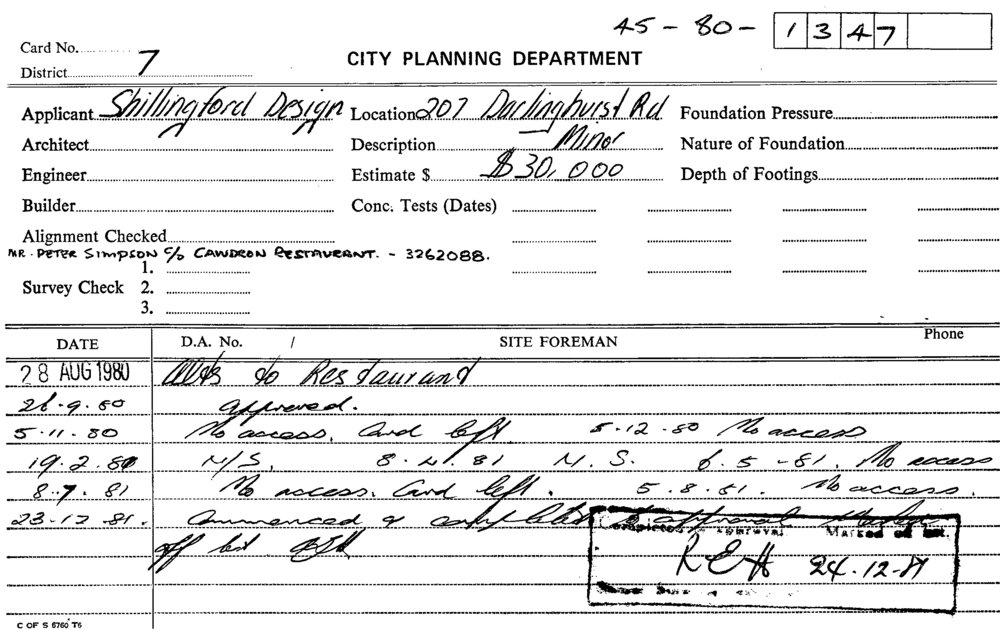 45 - 80 - 1347
Card No.
District 7
CITY PLANNING DEPARTMENT
Applicant Shillingford Design Location 207 Darlinghurst Rd Foundation Pressure
Architect Description Minor Nature of Foundation
Engineer Estimate $ $30,000 Depth of Footings
Builder Conc. Tests (Dates)
Alignment Checked
MR. PETER SIMPSON C/o CAWDRON RESTAURANT. - 3262088.
1.
Survey Check 2.
3.
DATE D.A. No. / SITE FOREMAN Phone
28 AUG 1980 Alts to Restaurant
26.9.80 approved.
5.11.80 No access. Card left. 5.12.80 No access
19.2.81 N/S. 8.4.81 N.S. 6.5-81. No access
8.7.81 No access. Card left. 5.8.81. No access.
23.12.81. Commenced & completed approval Marked
off list.
Completed approval. Marked off list.
REH 24.12.81
C OF S 6760 T6